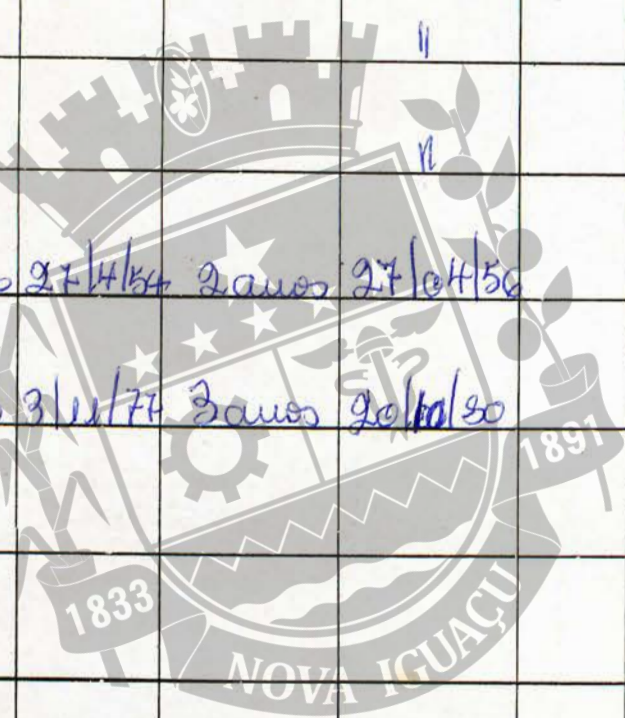 "
"
27/4/54 2 anos 27/04/56
3/11/77 3 anos 20/10/80
1891
1833
NOVA IGUAÇU